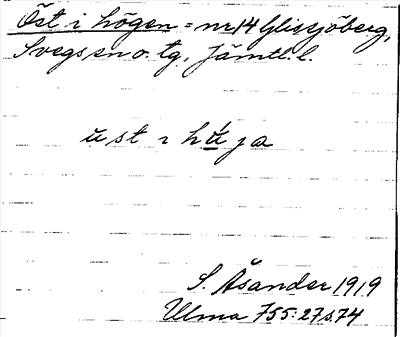 Öst i högen = nr 14 Glissjöberg,
Svegs sn o. tg, Jämtl. l.
ust ı hú ja
S. Åsander 1919
Ulma 755: 27 s. 74